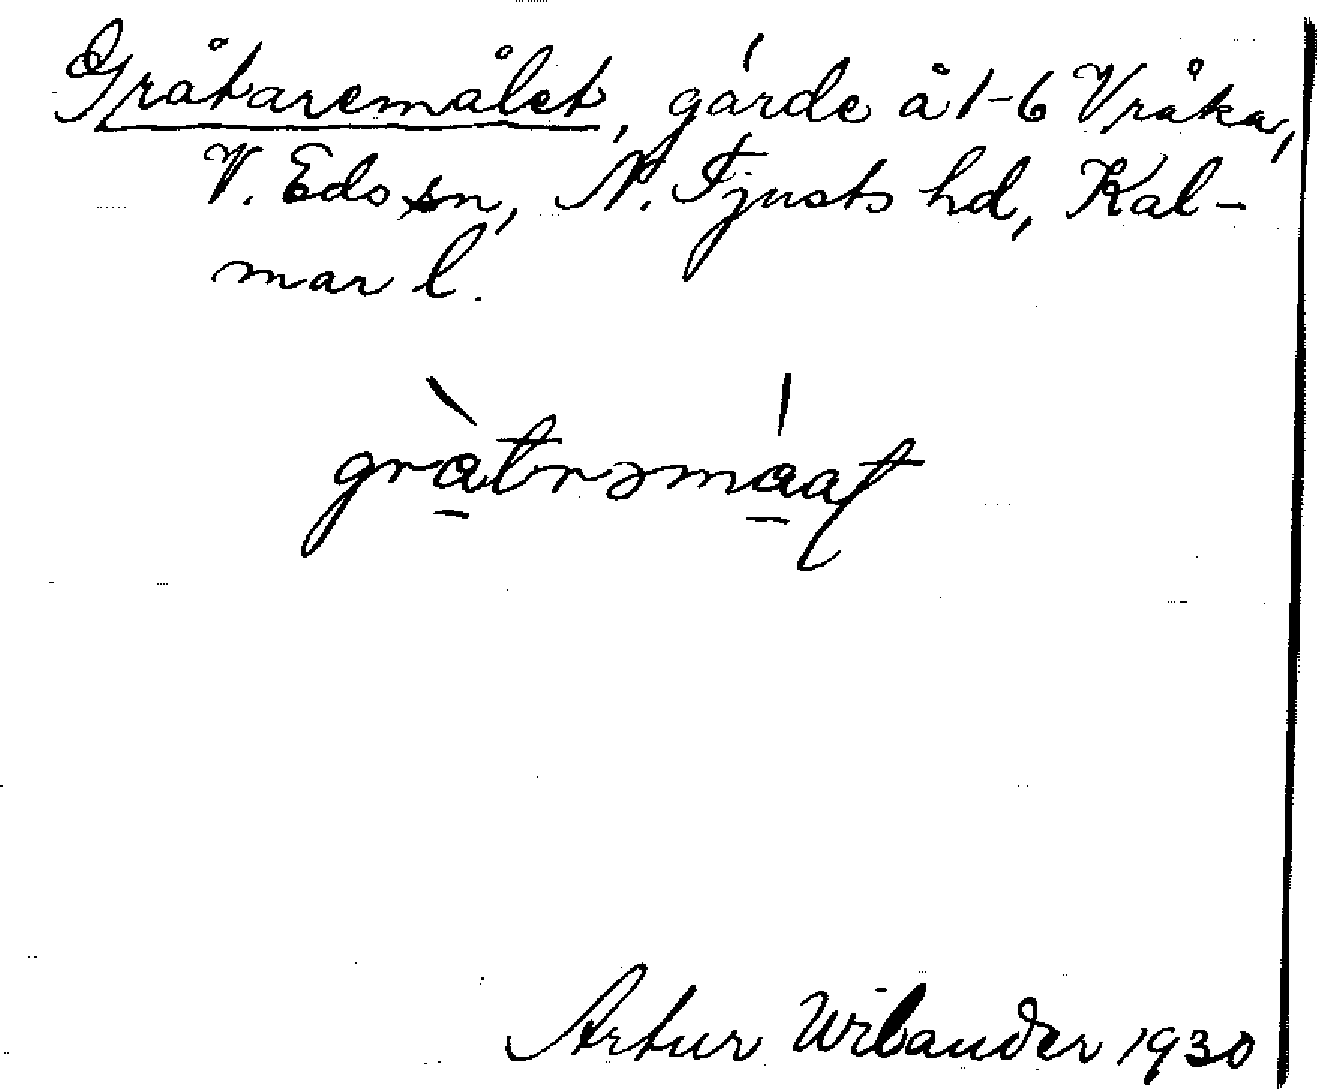 Gråtaremålet, gärde å 1-6 Vråka,
V. Eds sn, N. Tjusts hd, Kal-
mar l.
gràtrəmáat
Artur Wilander 1930